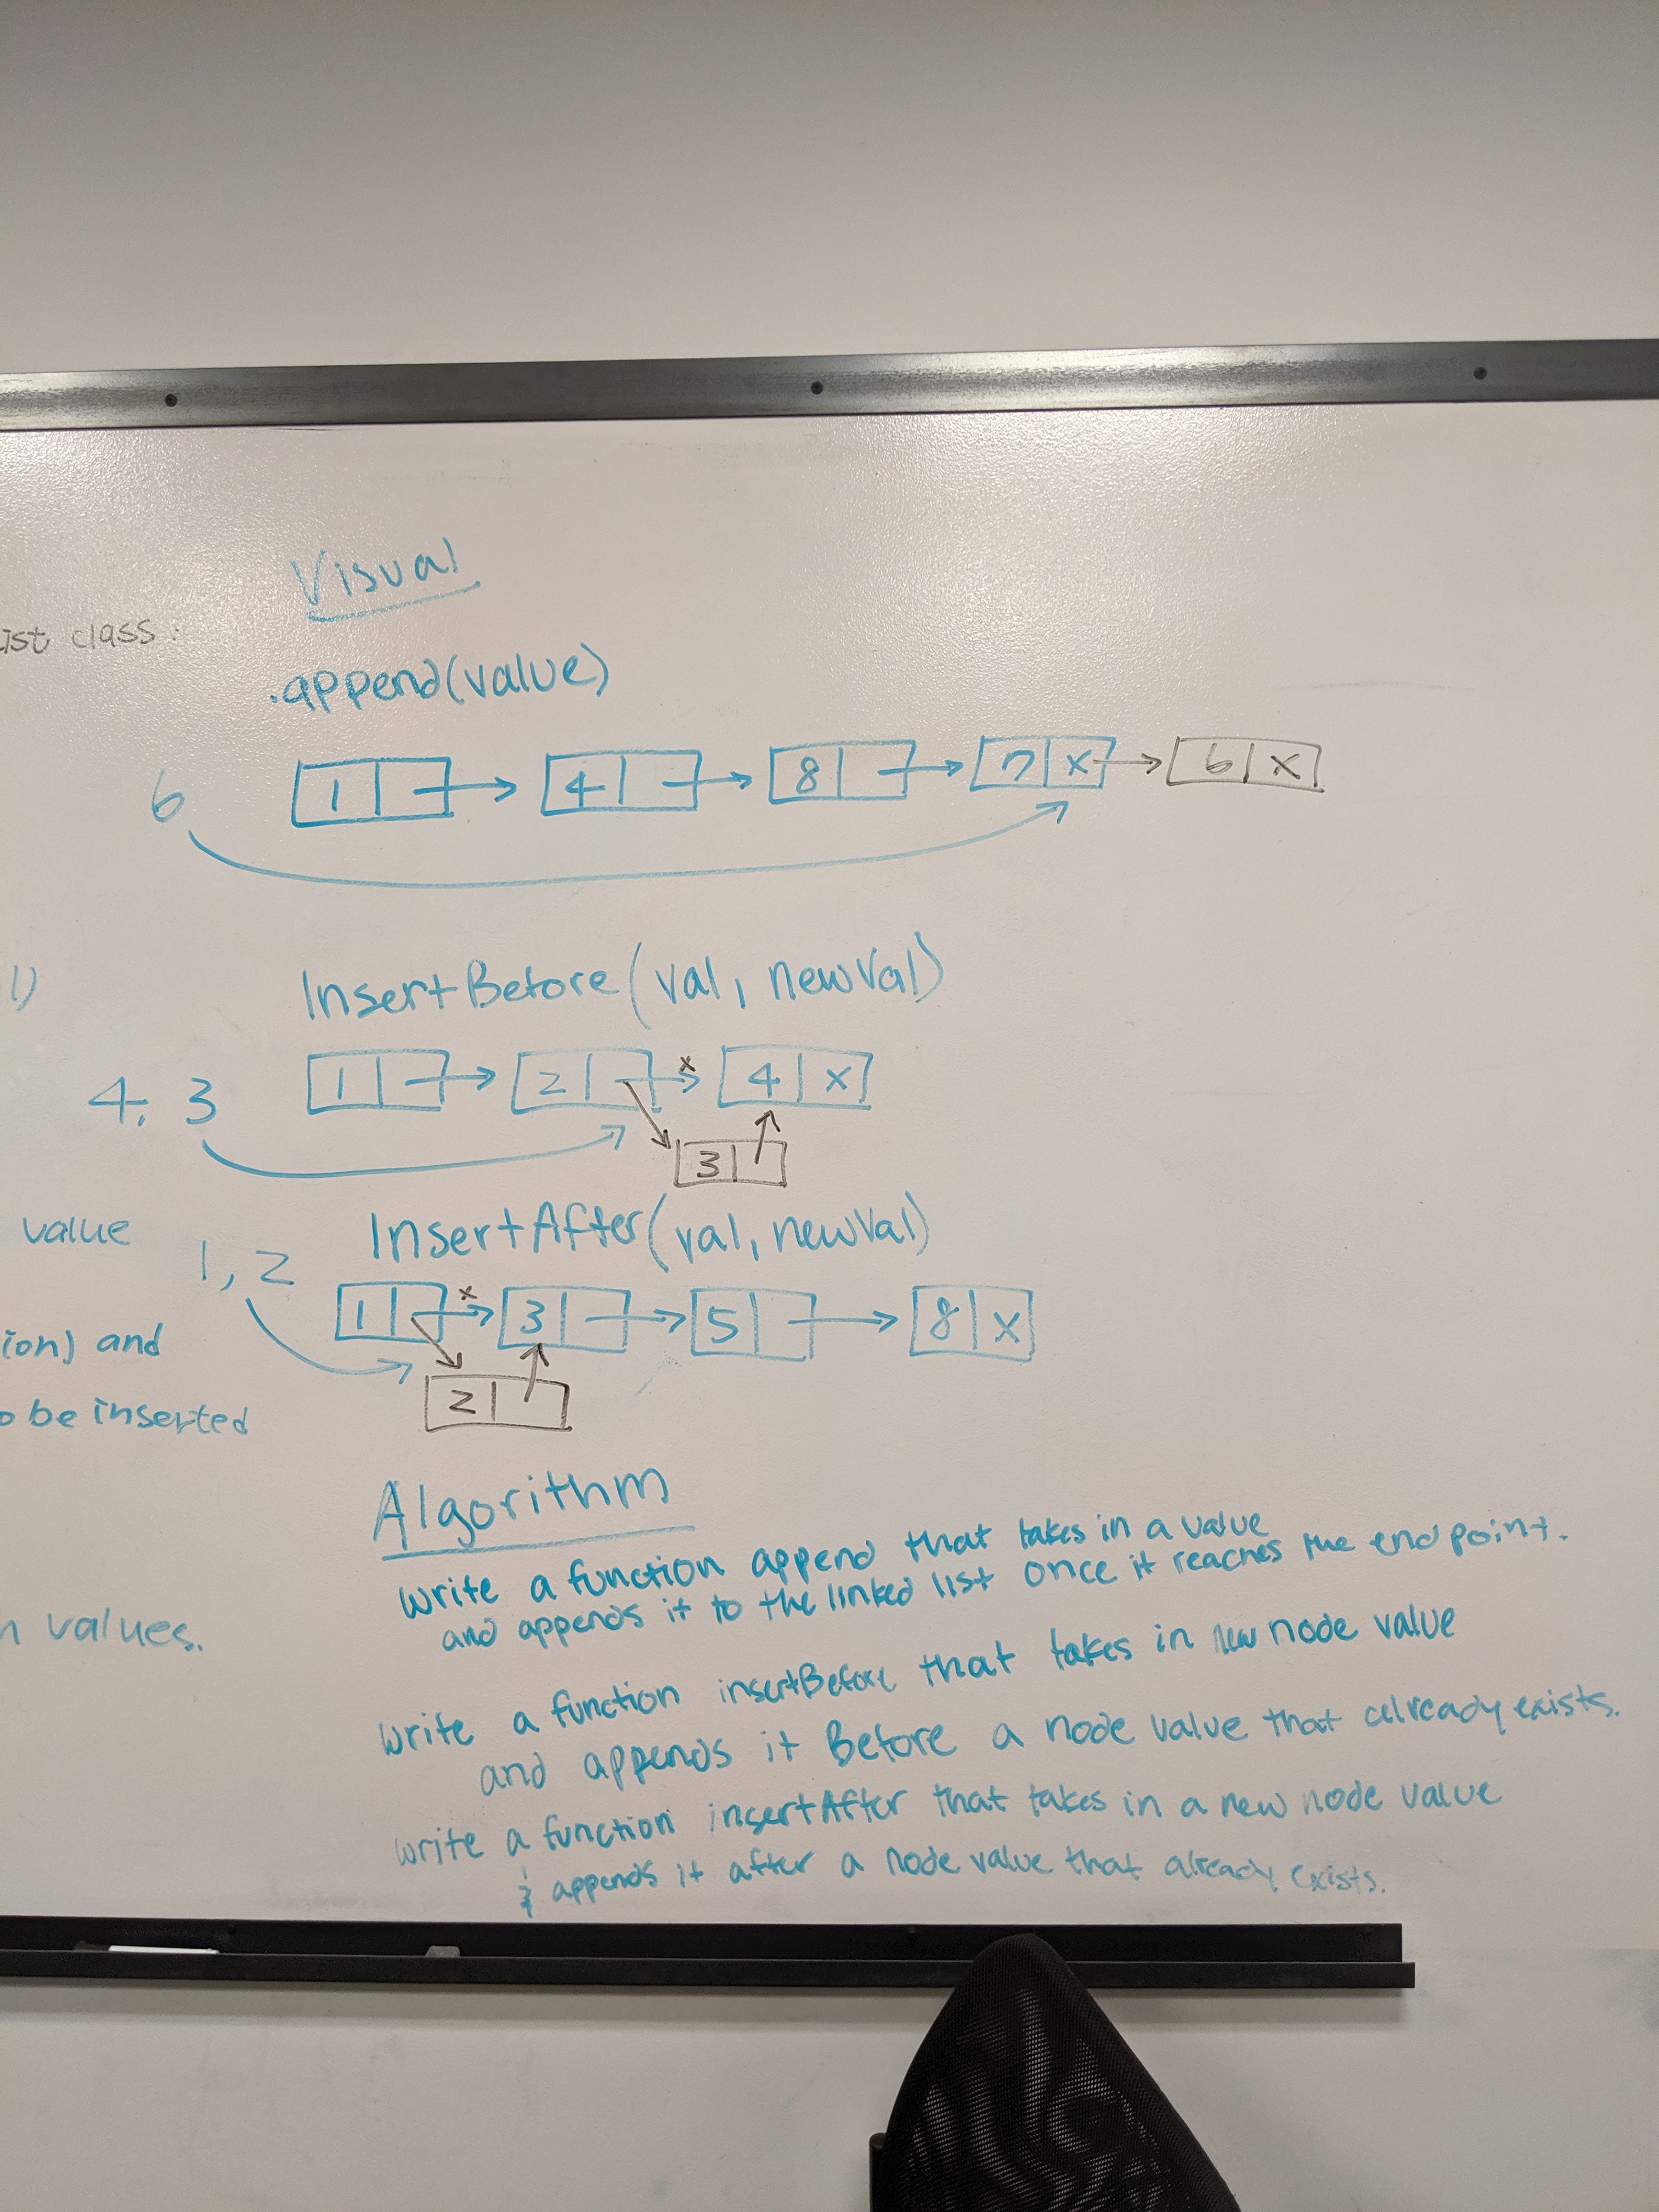 Visual
ist class:
.append(value)
6
1 4 8 7 x 6 x
l)
InsertBefore(val, newVal)
4, 3
1 2 x 4 x
3
value
1, 2
InsertAfter(val, newVal)
1 x 3 5 8 x
ion) and
2
o be inserted
Algorithm
write a function append that takes in a value
and appends it to the linked list once it reaches the endpoint.
n values.
write a function insertBefore that takes in new node value
and appends it Before a node value that already exists.
write a function insertAfter that takes in a new node value
& appends it after a node value that already exists.